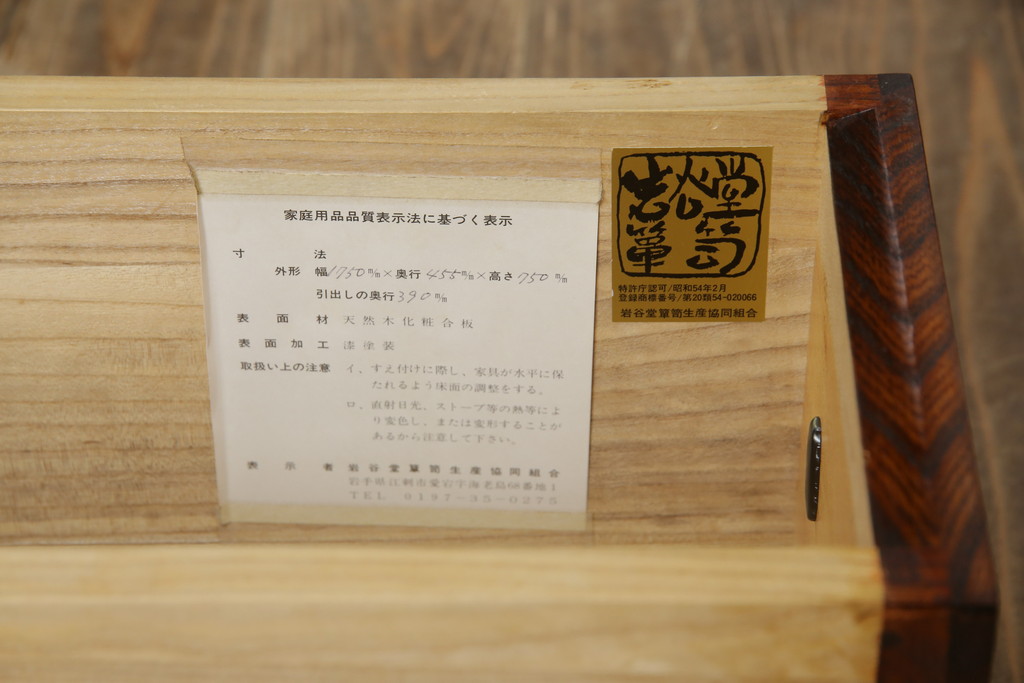 家庭用品品質表示法に基づく表示
寸法
外形 幅1750m/m×奥行455m/m×高さ750m/m
引出しの奥行390m/m
表面材 天然木化粧合板
表面加工 漆塗装
取扱い上の注意 イ、すえ付けに際し、家具が水平に保
たれるよう床面の調整をする。
ロ、直射日光、ストーブ等の熱等によ
り変色し、または変形することが
あるから注意して下さい。
表示者 岩谷堂簞笥生産協同組合
岩手県江刺市愛宕字海老島68番地1
TEL 0197-35-0275
岩谷堂簞笥
特許庁認可/昭和54年2月
登録商標番号/第20類54-020066
岩谷堂簞笥生産協同組合